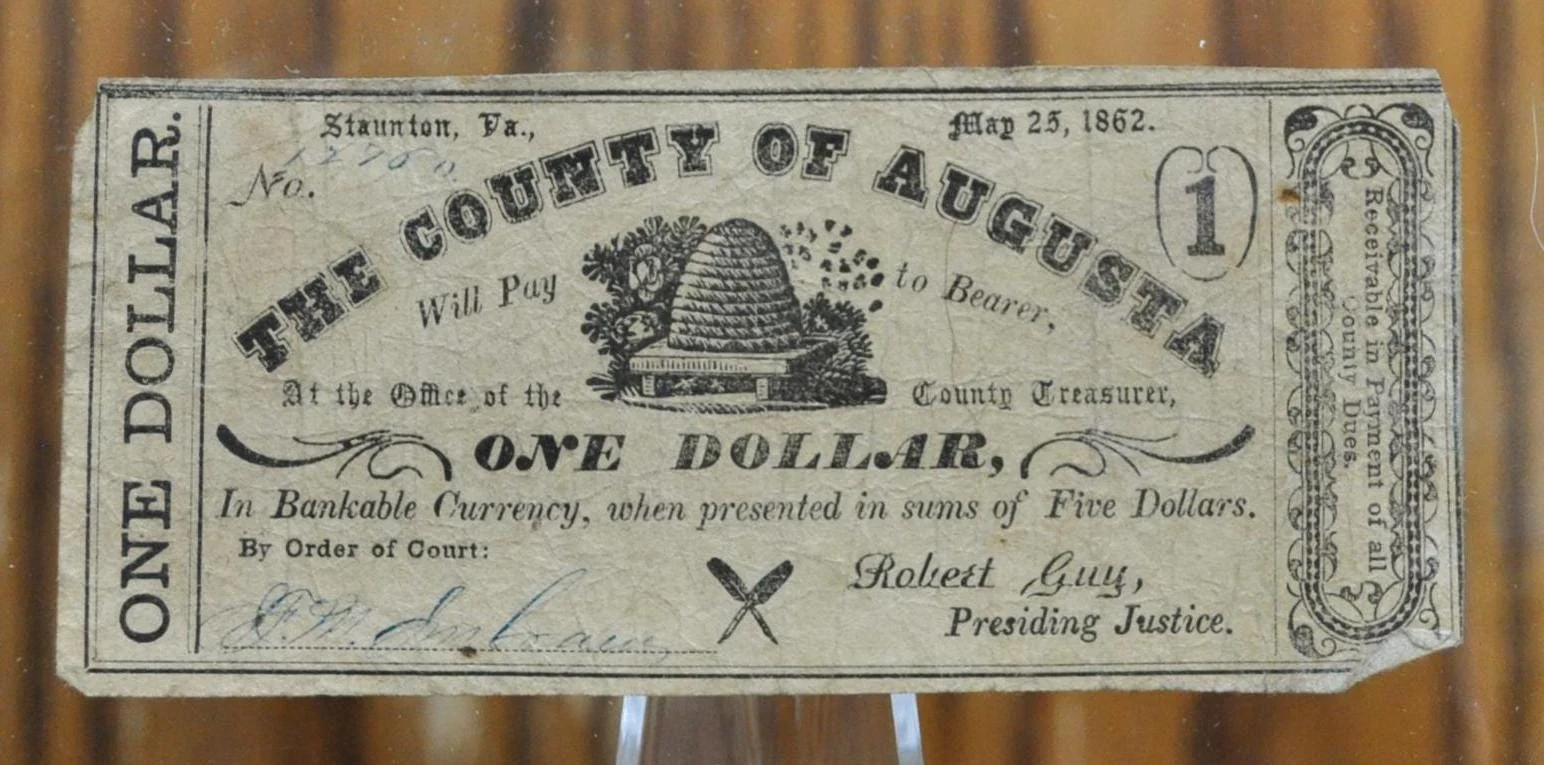 ONE DOLLAR.
Staunton, Va., May 25, 1862.
No.
THE COUNTY OF AUGUSTA
1
Will Pay to Bearer,
At the Office of the County Treasurer,
ONE DOLLAR,
In Bankable Currency, when presented in sums of Five Dollars.
By Order of Court:
Robert Guy,
Presiding Justice.
Receivable in Payment of all
County Dues.